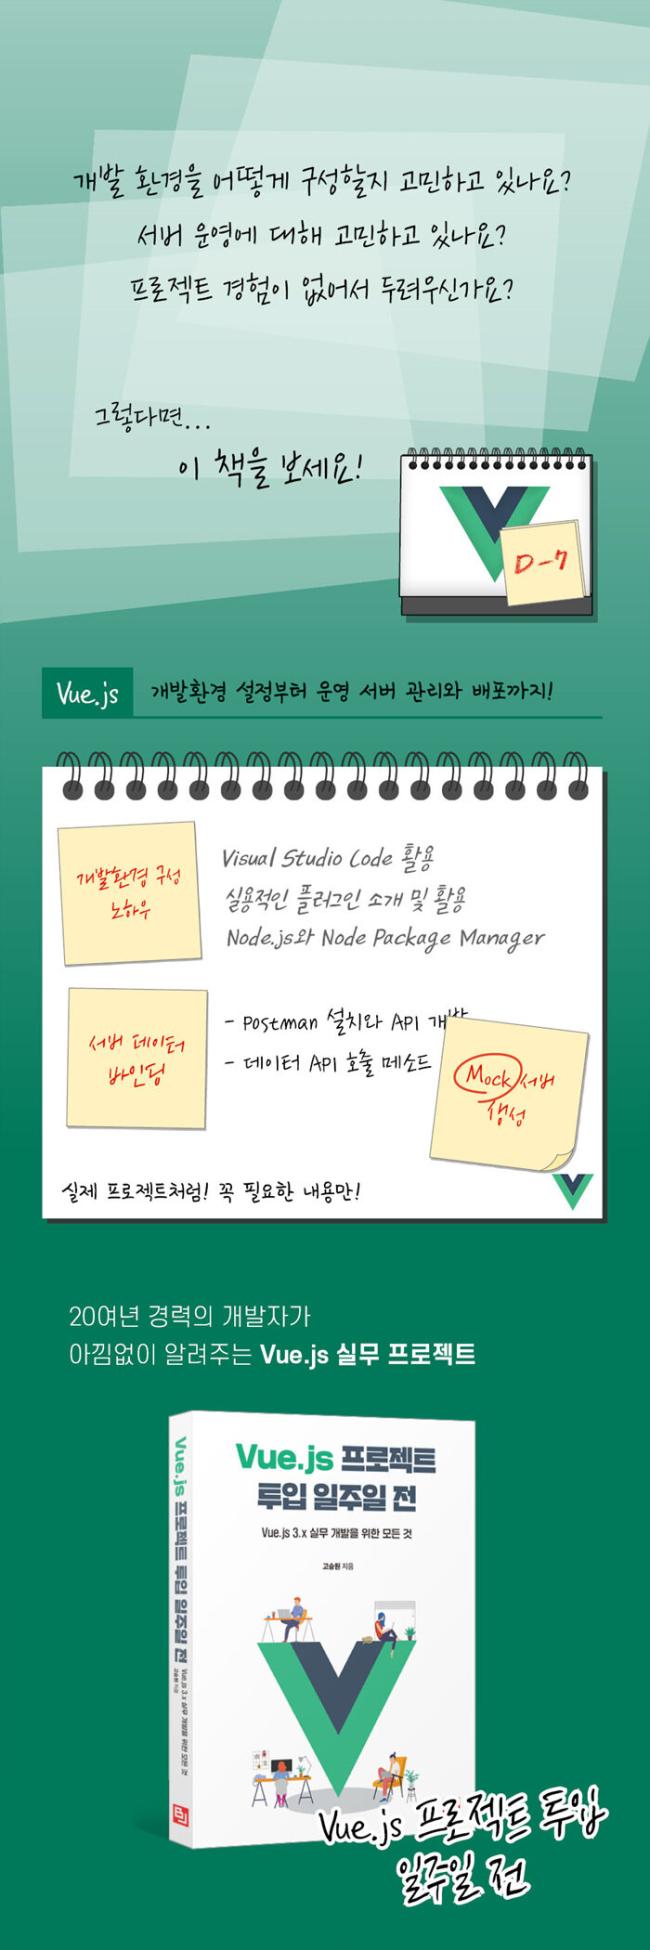 개발 환경을 어떻게 구성할지 고민하고 있나요?
서버 운영에 대해 고민하고 있나요?
프로젝트 경험이 없어서 두려우신가요?
그렇다면...
이 책을 보세요!
D-7
Vue.js 개발환경 설정부터 운영 서버 관리와 배포까지!
개발환경 구성
노하우
Visual Studio Code 활용
실용적인 플러그인 소개 및 활용
Node.js와 Node Package Manager
서버 데이터
바인딩
- Postman 설치와 API 개발
- 데이터 API 호출 메소드
Mock 서버
생성
실제 프로젝트처럼! 꼭 필요한 내용만!
20여년 경력의 개발자가
아낌없이 알려주는 Vue.js 실무 프로젝트
Vue.js 프로젝트
투입 일주일 전
Vue.js 3.x 실무 개발을 위한 모든 것
고승원 지음
Vue.js 프로젝트 투입 일주일 전
Vue.js 3.x 실무 개발을 위한 모든 것
고승원 지음
BJ
Vue.js 프로젝트 투입
일주일 전